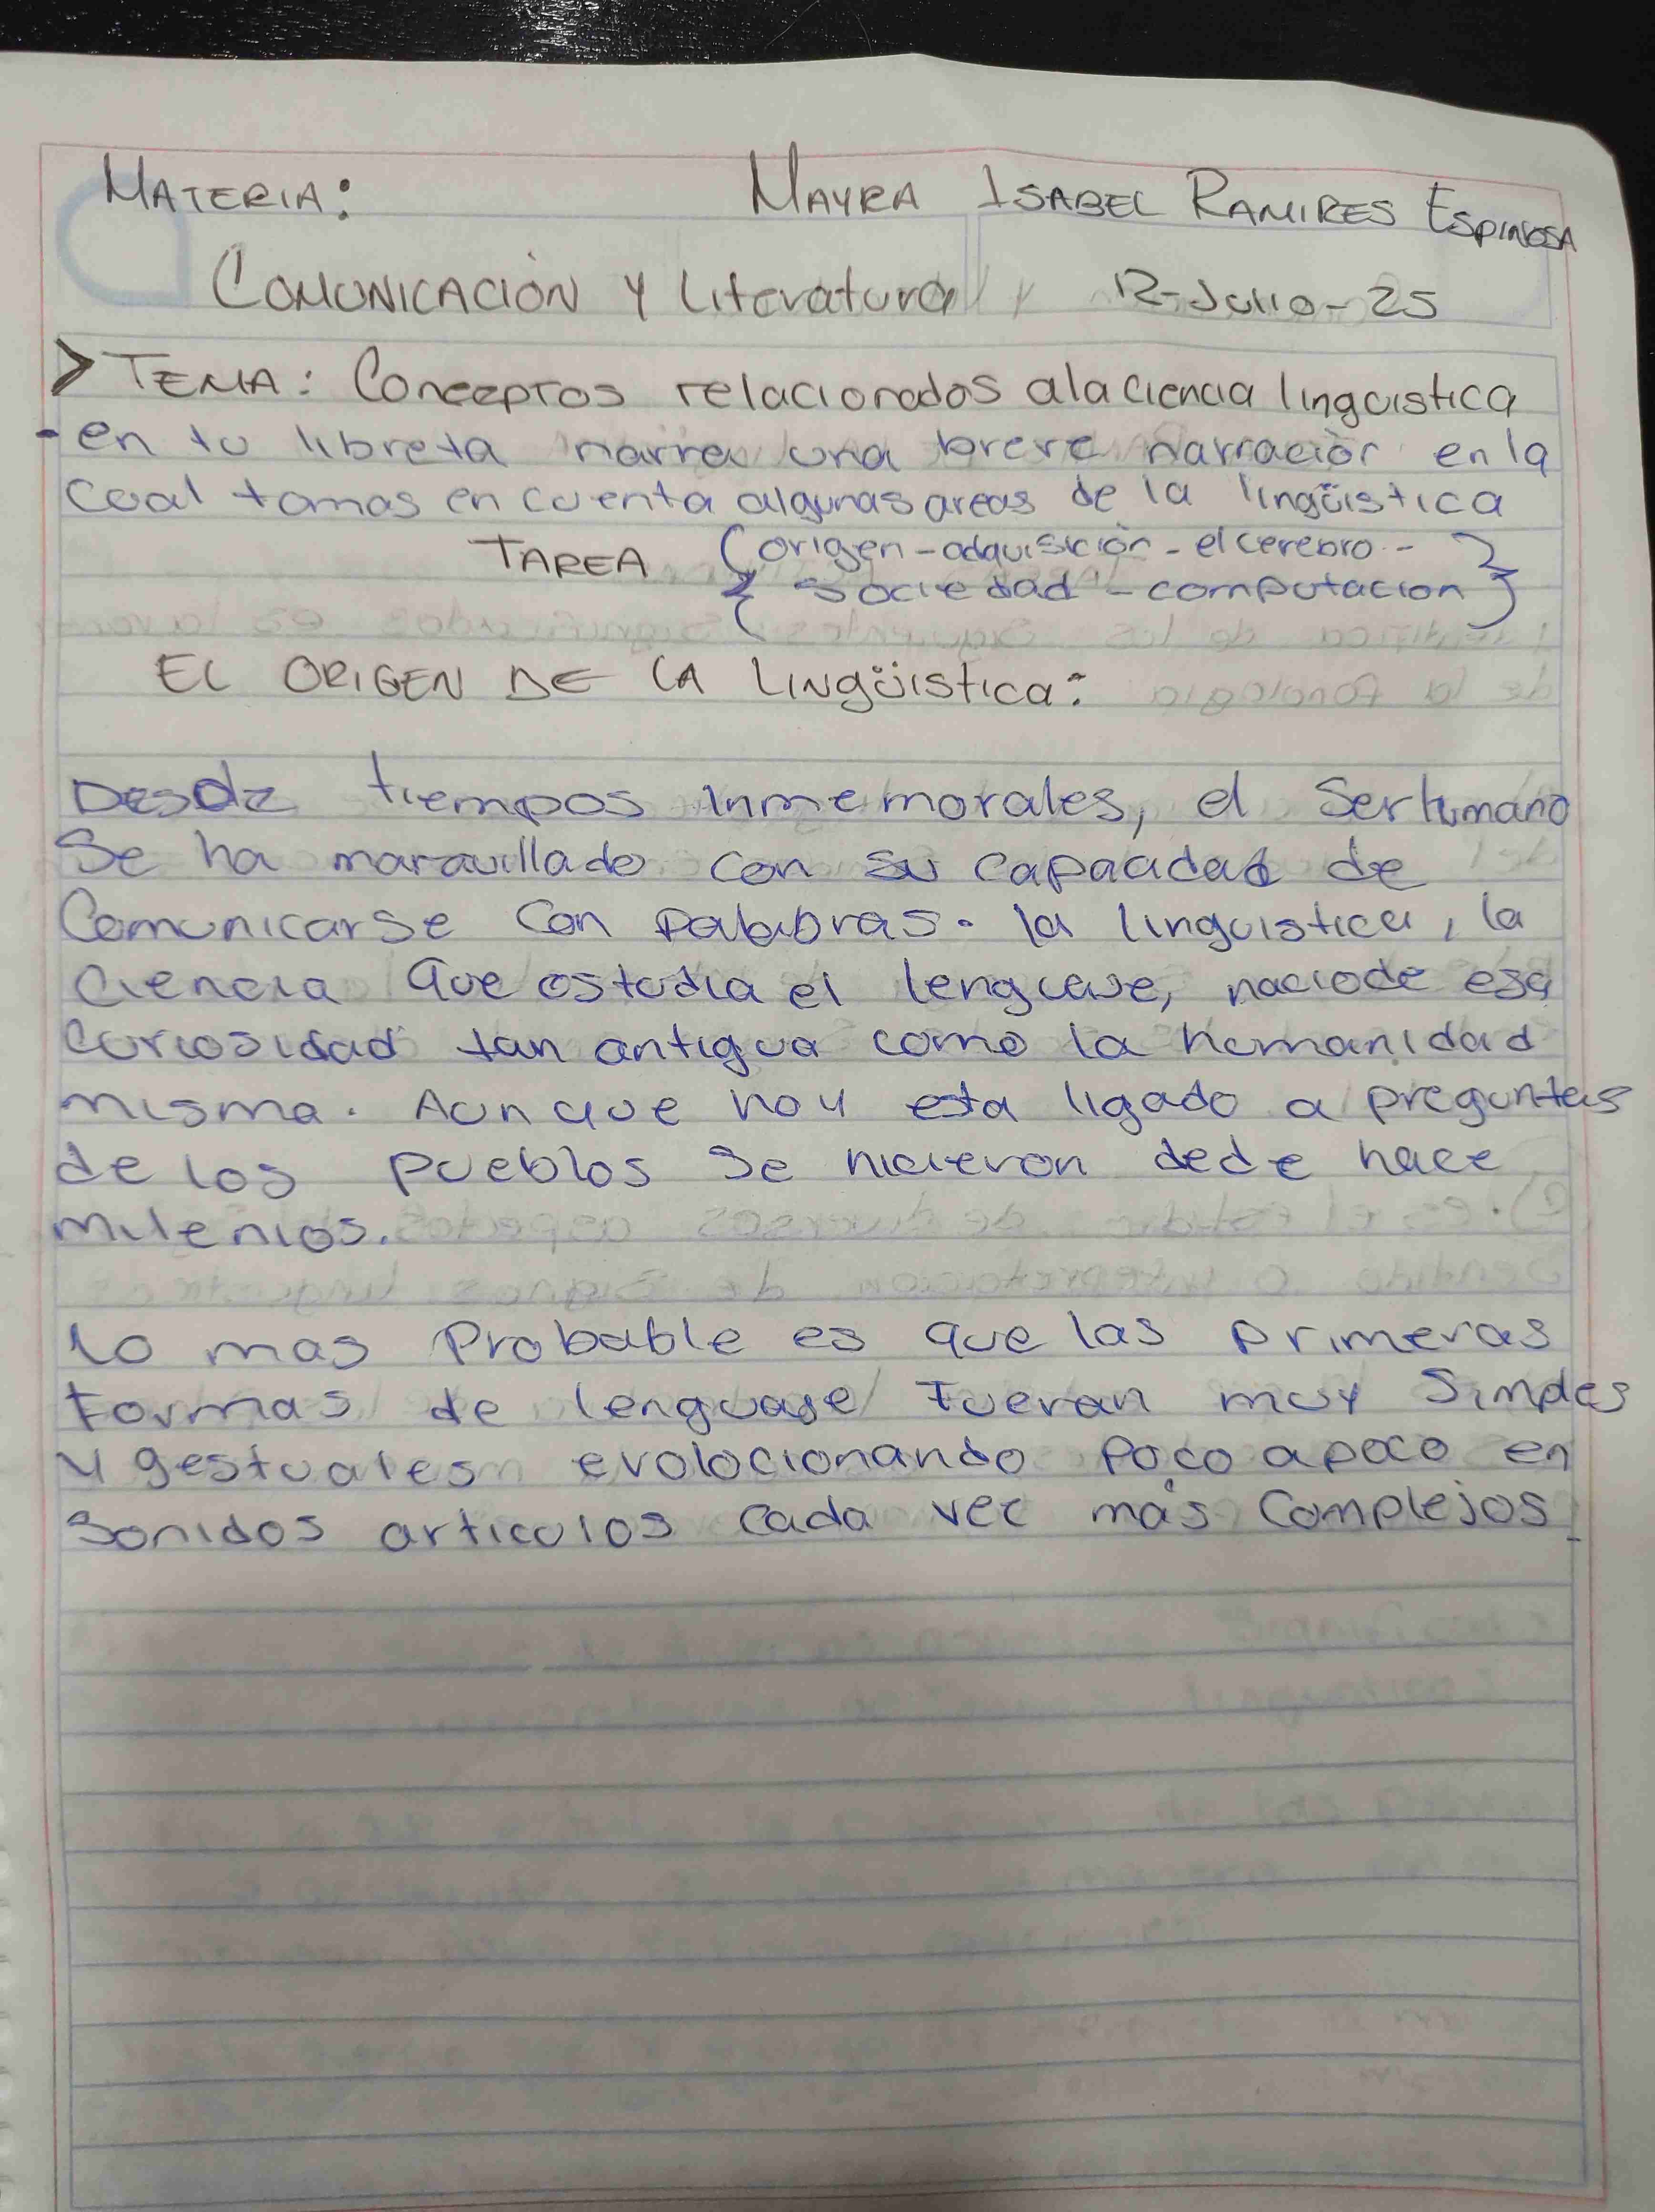 MATERIA: MAYRA ISABEL RAMIRES ESPINOSA
COMUNICACIÓN Y Literatura 12-Julio-25
> TEMA: Conceptos relacionados a la ciencia linguistica
- en tu libreta narra una breve narraciòn en la
cual tomas en cuenta algunas areas de la lingüistica
TAREA (origen - adquisición - el cerebro -
{ sociedad - computacion }
EL ORIGEN DE LA Lingüistica:
Desde tiempos inmemorales, el Ser humano
Se ha maravillado con su capacidad de
Comunicarse Con palabras. la linguistica, la
Ciencia Que estudia el lenguaje, naciode esa
curiosidad tan antigua como la humanidad
misma. Aun que hoy esta ligado a preguntas
de los pueblos se hicieron dede hace
milenios.
lo mas Probable es que las primeras
formas de lenguaje fueran muy Simples
y gestuales evolocionando poco a poco en
Sonidos articulos cada vec más Complejos